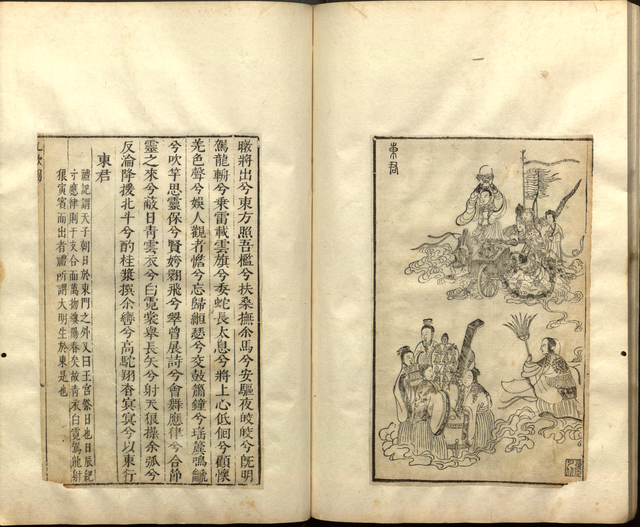 暾將出兮東方照吾檻兮扶桑撫余馬兮安驅夜皎皎兮旣明
駕龍輈兮乘雷載雲旗兮委蛇長太息兮將上心低佪兮顧懷
羌色聲兮娛人觀者憺兮忘歸緪瑟兮交鼓簫鐘兮瑤簴鳴
兮吹竽思靈保兮賢姱翾飛兮翠曾展詩兮會舞應律兮合節
靈之來兮蔽日青雲衣兮白霓裳舉長矢兮射天狼操余弧兮
反淪降援北斗兮酌桂漿撰余轡兮高駝翔杳冥冥兮以東行
東君
禮記謂天子朝日於東門之外又曰王宮祭日也日辰紀
應律則于支合而萬物陽春矣故青衣白霓駕龍射
狼寅賓而出者禮所謂大明生於東是也
東君